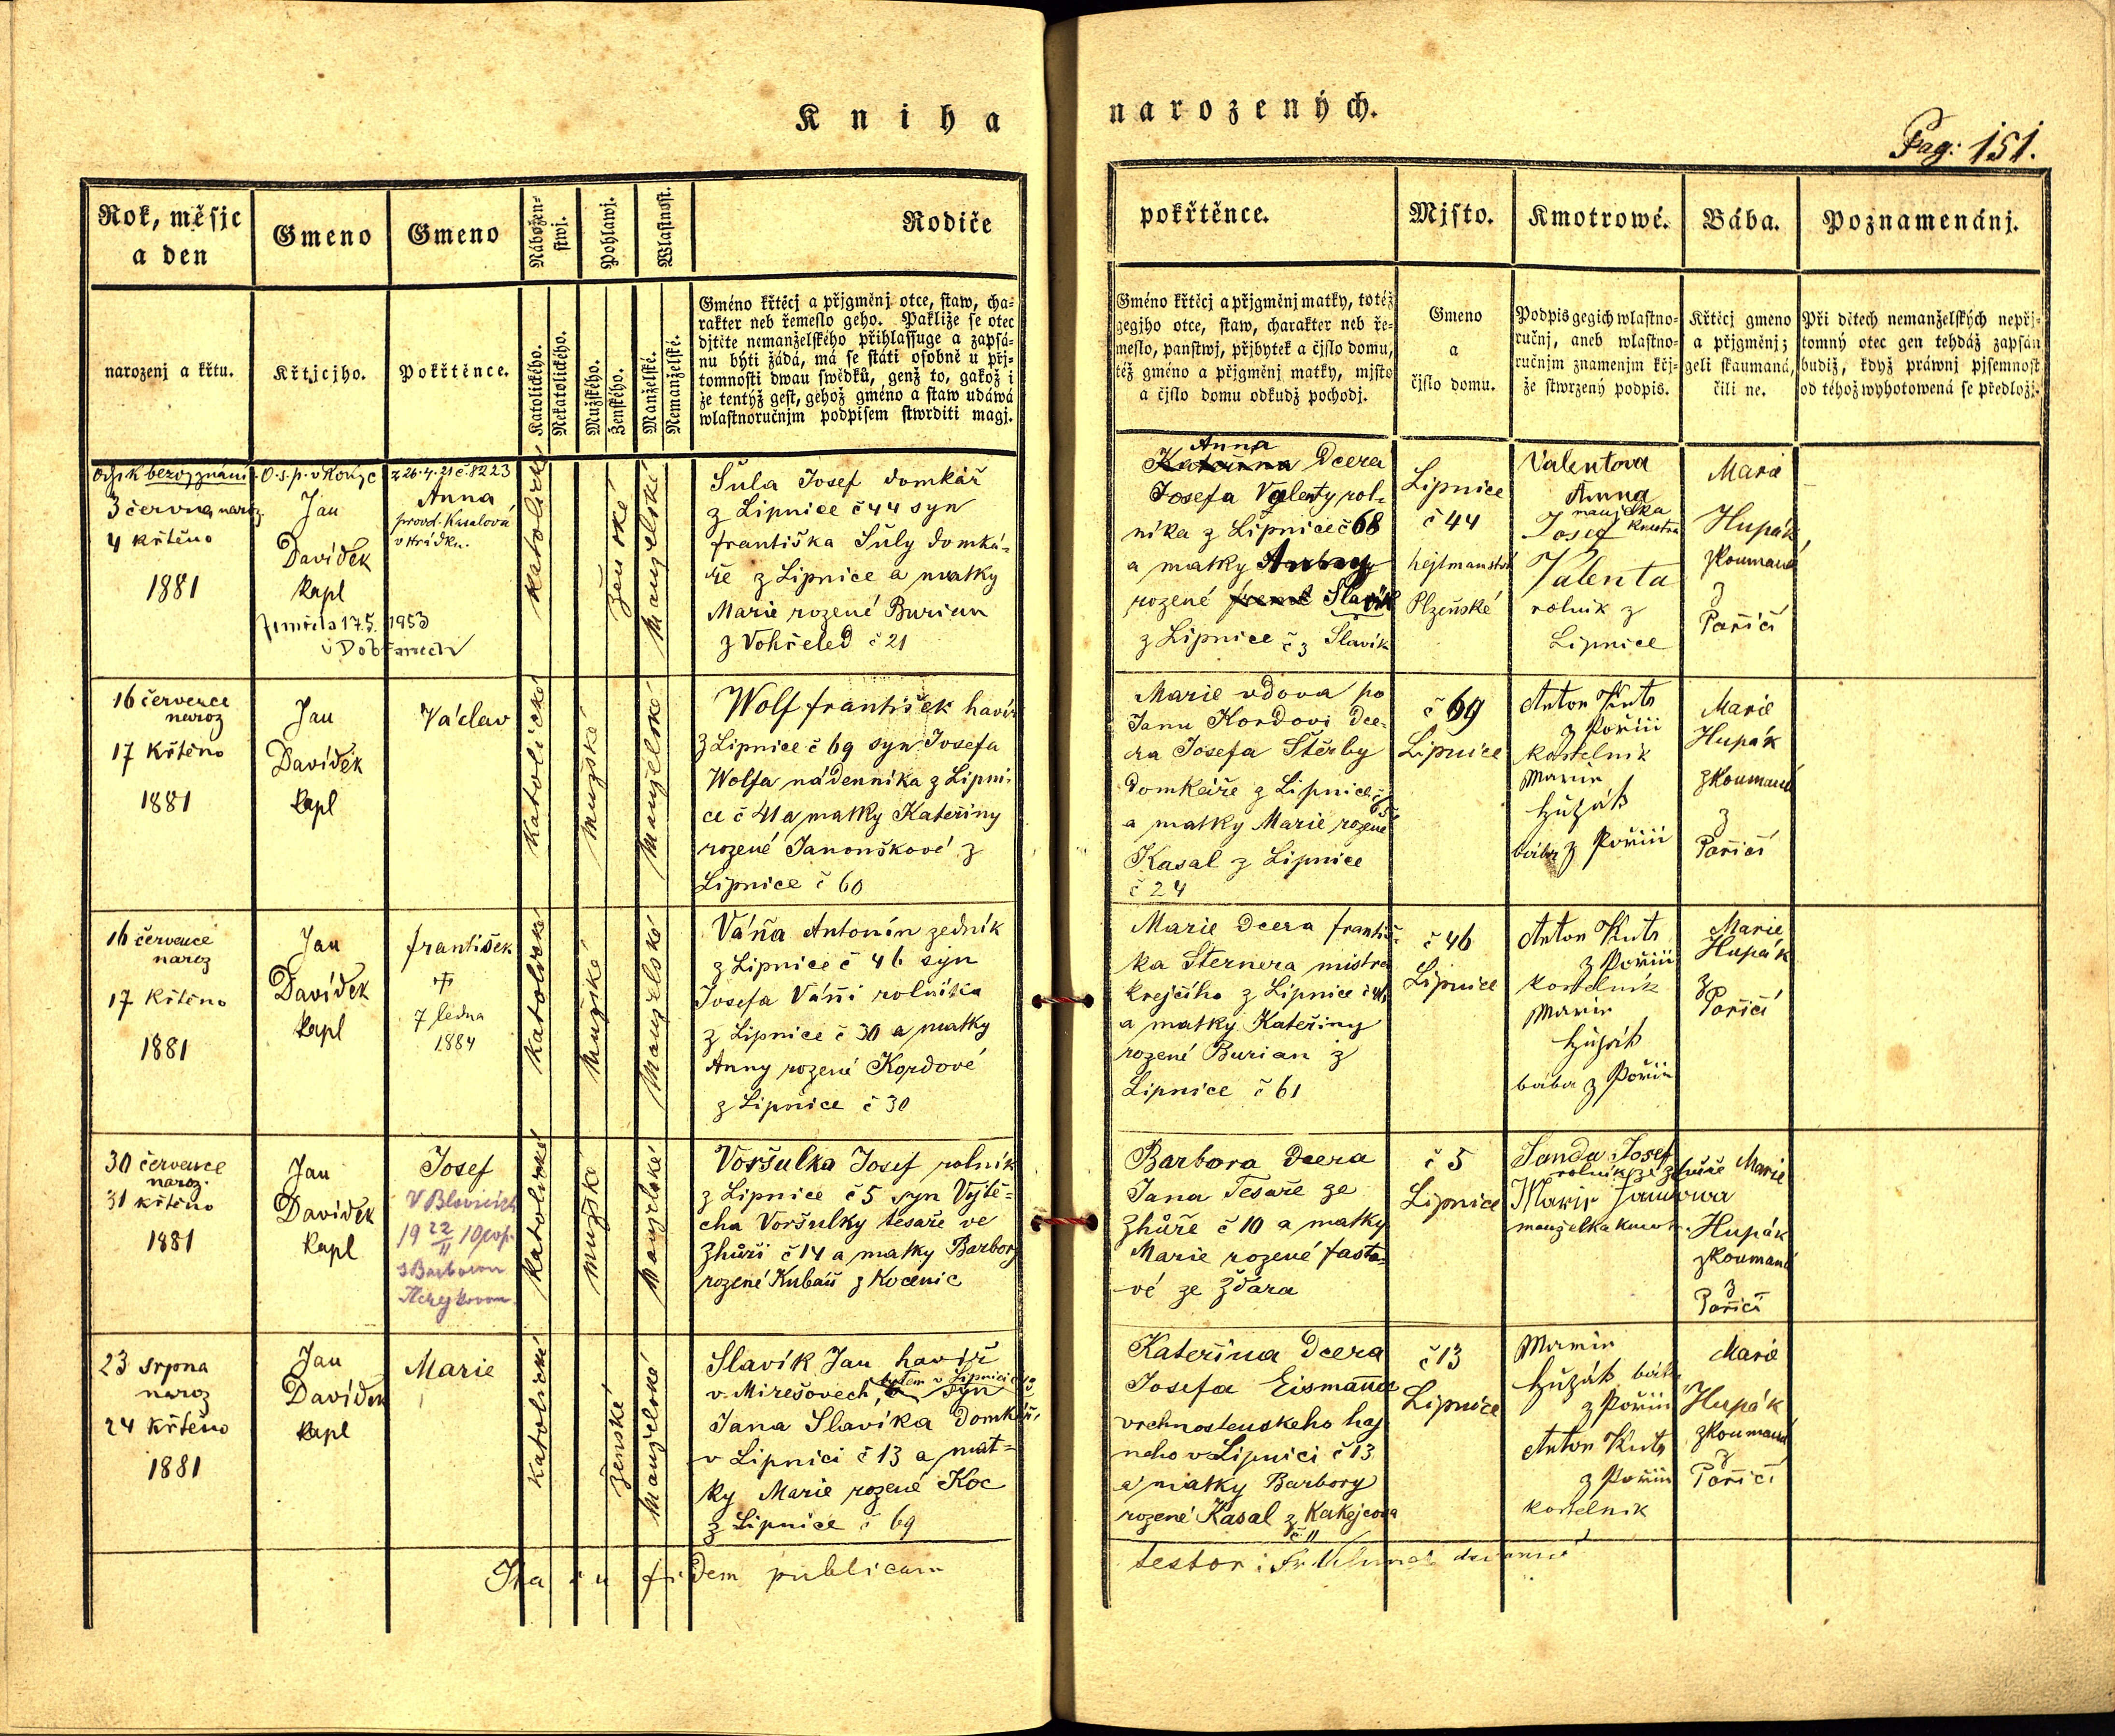 Kniha
narozených.
Pag: 151.
Rok, měsjc
a den
Gmeno
Gmeno
Nábožen-
stwj.
Pohlawj.
Wlastnost.
Rodiče
pokřtěnce.
Mjsto.
Kmotrowé.
Bába.
Poznamenánj.
narozenj a křtu.
Křtjcjho.
Pokřtěnce.
Katolického.
Nekatolického.
Mužského.
Ženského.
Manželské.
Nemanželské.
Gméno křtěcj a přjgměnj otce, staw, cha-
rakter neb řemeslo geho. Pakliže se otec
djtěte nemanželského přihlassuge a zapsá-
nu býti žádá, má se státi osobně u přj-
tomnosti dwau swědků, genž to, gakož i
že tentýž gest, gehož gméno a staw udáwá
wlastnoručnjm podpisem stwrditi magj.
Gméno křtěcj a přjgměnj matky, totéž
gegjho otce, staw, charakter neb ře-
meslo, panstwj, přjbytek a čjslo domu,
též gméno a přjgměnj matky, mjsto
a čjslo domu odkudž pocházj.
Gmeno
a
čjslo domu.
Podpis gegich wlastno-
ručnj, aneb wlastno-
ručnjm znamenjm křj-
že stwrzený podpis.
Křtěcj gmeno
a přjgměnj;
geli skaumaná,
čili ne.
Při dětech nemanželských nepřj-
tomný otec gen tehdáž zapsán
budiž, když práwnj pjsemnost
od téhož wyhotowená se předložj.
z 26.4.21 č. 8223
3 června naroz.
4 křtěno
1881
Jan
Davídek
kapl
Anna
provd. Kasalová
v Hrádku.
zemřela 17.5. 1953
v Dobřanech
katolické
ženské
manželské
Šula Josef domkář
z Lipnice č 44 syn
františka Šuly domká-
ře z Lipnice a matky
Marie rozené Burian
z Vohřeled č 21
Anna
Kateřina Dcera
Josefa Valenty rol-
níka z Lipnice č 68
a matky
rozené Slavík
z Lipnice č 3 Slavík
Lipnice
č 44
hejtmanství
Plzeňské
Valentova
Anna
manželka
Josef kmotra
Valenta
rolník z
Lipnice
Marie
Hupák
zkoumaná
z
Poříčí
16 července
naroz
17 křtěno
1881
Jan
Davídek
kapl
Václav
katolické
mužské
manželské
Wolf františek havíř
z Lipnice č 69 syn Josefa
Wolfa nádenníka z Lipni-
ce č 41 a matky Kateřiny
rozené Janouškové z
Lipnice č 60
Marie vdova po
Janu Kordovi dce-
ra Josefa Štěrby
domkáře z Lipnice č 65
a matky Marie rozené
Kasal z Lipnice
č 24
č 69
Lipnice
Anton Kuts
z Pořiči
kostelník
Marie
Hupák
bába z Pořiči
Marie
Hupák
zkoumaná
z
Poříčí
16 července
naroz
17 křtěno
1881
Jan
Davídek
kapl
františek
✝
7 ledna
1884
katolické
mužské
manželské
Váňa Antonín zedník
z Lipnice č 46 syn
Josefa Váni rolníka
z Lipnice č 30 a matky
Anny rozené Kordové
z Lipnice č 30
Marie dcera františ-
ka Šternera mistra
krejčího z Lipnice č 46
a matky Kateřiny
rozené Burian z
Lipnice č 61
č 46
Lipnice
Anton Kuts
z Pořiči
kostelník
Marie
Hupák
bába z Pořiči
Marie
Hupák
z
Poříčí
30 července
naroz.
31 křtěno
1881
Jan
Davídek
kapl
Josef
V Blovicích
19 22/11 10 odd.
s Barborou
katolické
mužské
manželské
Voršulka Josef rolník
z Lipnice č 5 syn Vojtě-
cha Voršulky tesaře ve
Zhůři č 14 a matky Barbory
rozené Kubań z Kocenic
Barbora dcera
Jana Tesaře ze
Zhůře č 10 a matky
Marie rozené fasta-
vé ze Ždára
č 5
Lipnice
Janda Josef
rolník ze Zhůře
Marie Jandowa
manželka kmotr.
Marie
Hupák
zkoumaná
z
Poříčí
23 srpna
naroz
24 křtěno
1881
Jan
Davídek
kapl
Marie
katolické
ženské
manželské
Slavík Jan havíř
v Mirešovech, bytem v Lipnici č 13 syn
Jana Slavíka domkáře
v Lipnici č 13 a mat-
ky Marie rozené Koc
z Lipnice č 69
Kateřina dcera
Josefa Eismanna
vrchnostenskeho haj-
neho v Lipnici č 13
a matky Barbory
rozené Kasal z Kakejcova
č 11
č 13
Lipnice
Marie
Hupák bába
z Pořiči
Anton Kuts
z Pořiči
kostelník
Marie
Hupák
zkoumaná
z
Poříčí
Ita in fidem publicam
testor: